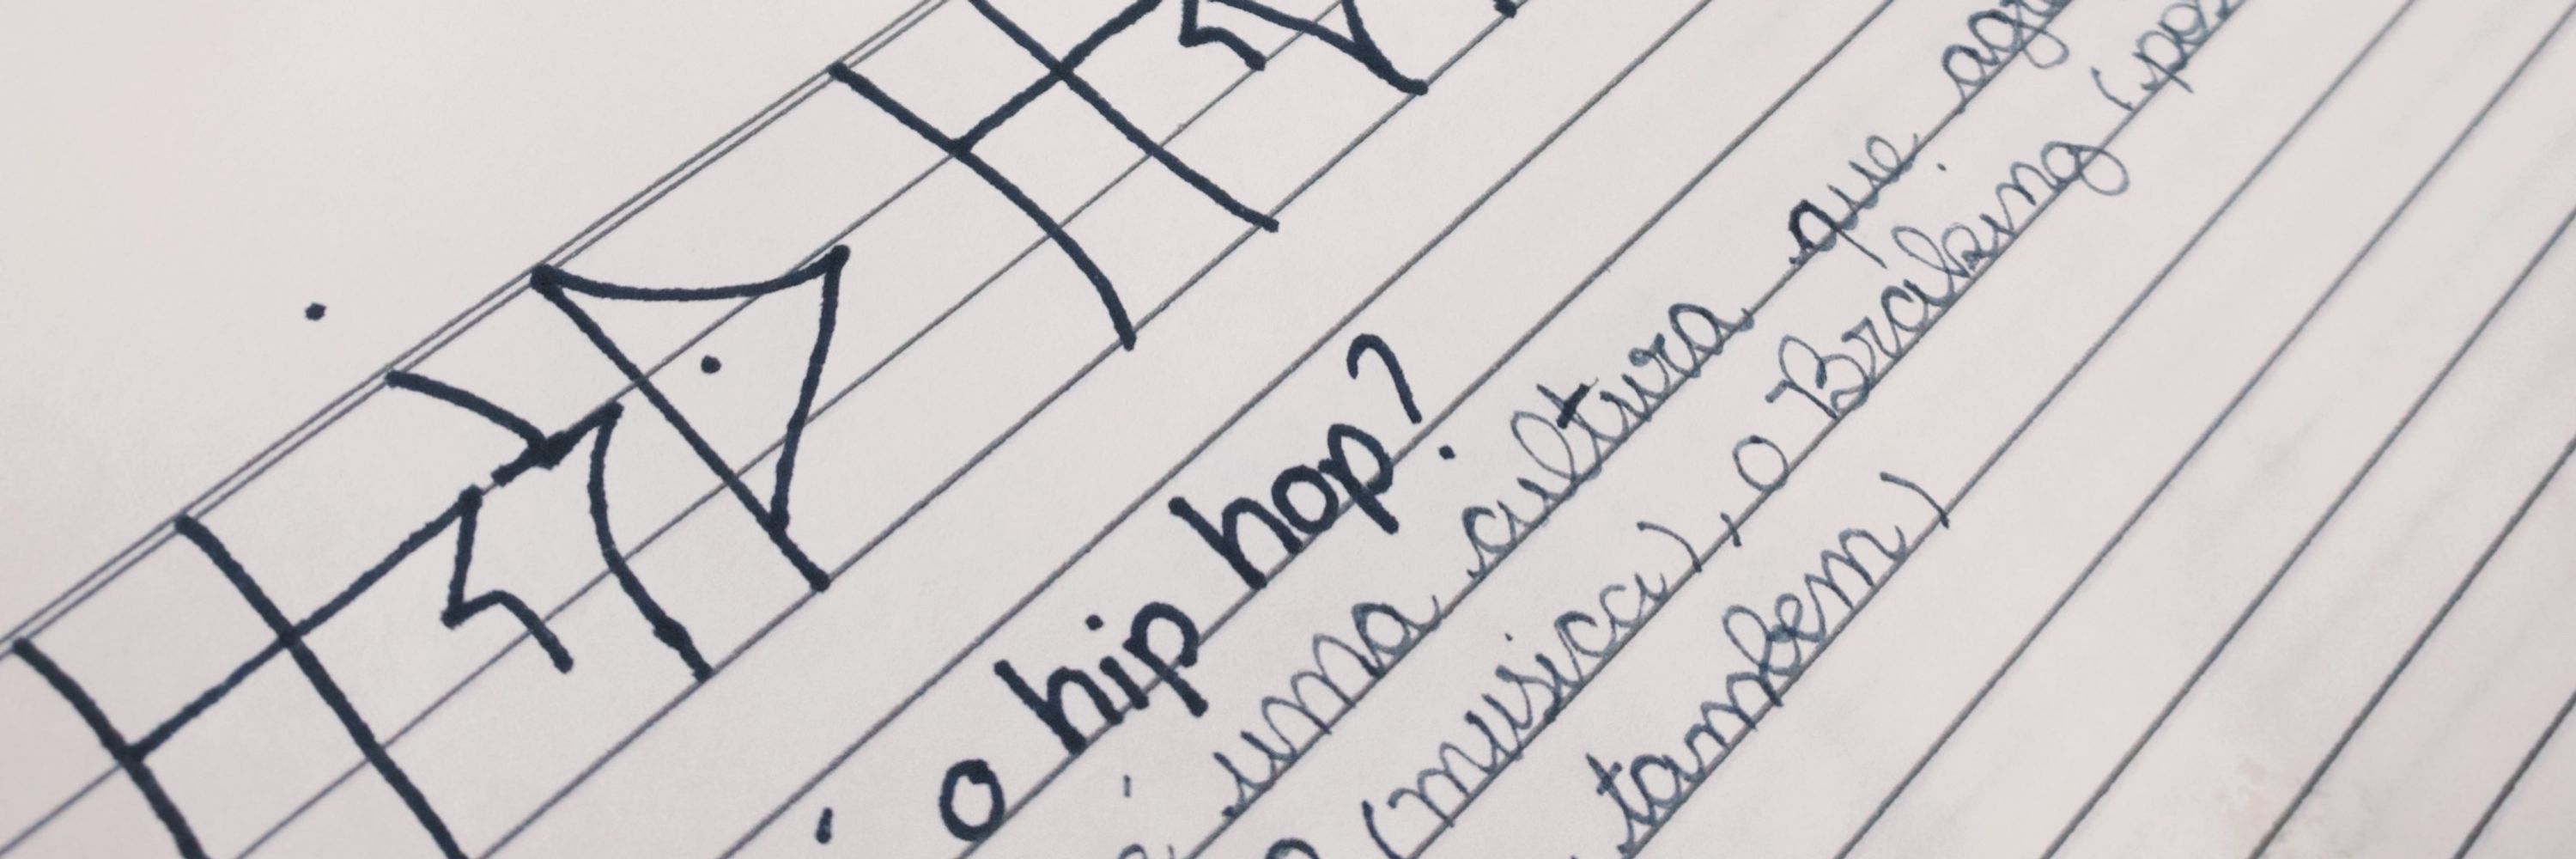 HIP H
o hip hop?
é uma cultura que
(musica), o Braking
tambem)